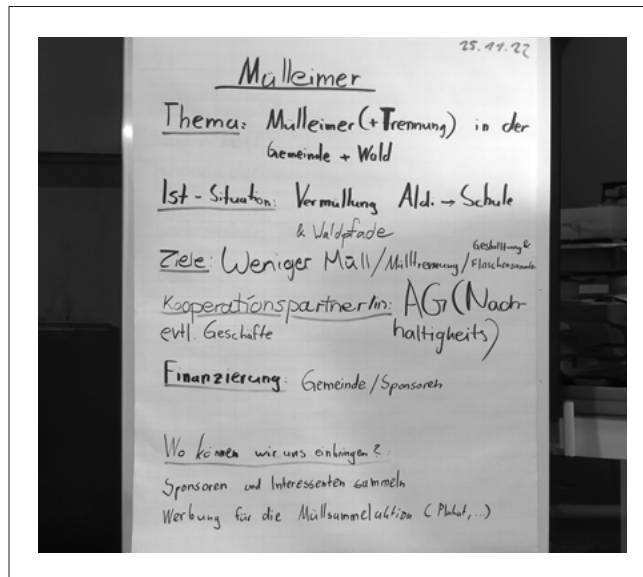 25.11.22
Mülleimer
Thema: Mülleimer (+Trennung) in der
Gemeinde + Wald
Ist-Situation: Vermüllung Aldi → Schule
& Waldpfade
Ziele: Weniger Müll / Mülltrennung / Gestaltung &
Kooperationspartner/in: AG (Nach-
evtl. Geschäfte haltigkeits)
Finanzierung: Gemeinde / Sponsoren
Wo können wir uns einbringen?
Sponsoren und Interessenten sammeln
Werbung für die Müllsammelaktion (Plakat, ...)